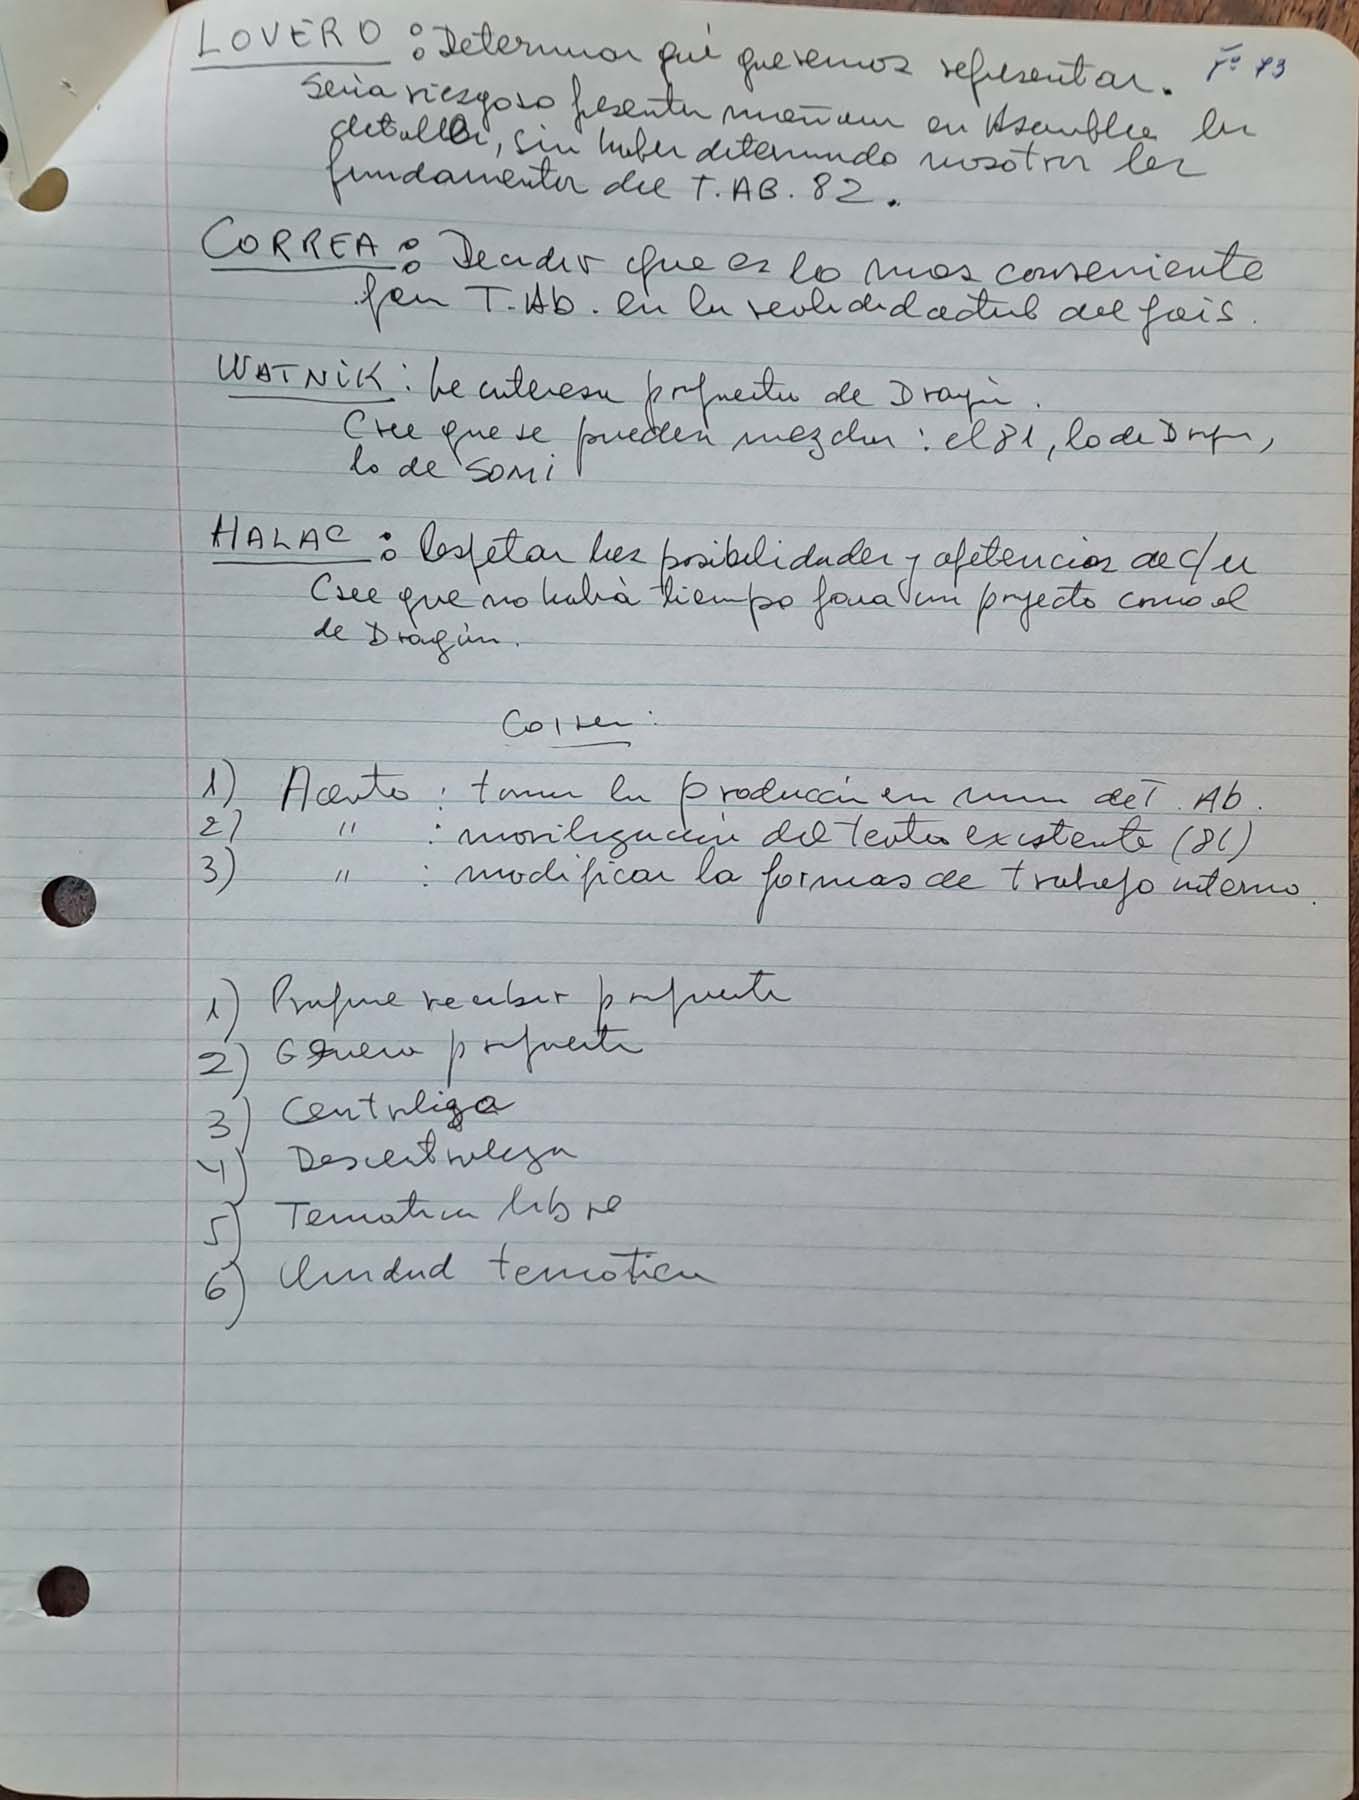 Fº 73
LOVERO: Determinar qué queremos representar.
Sería riesgoso presentar mañana en Asamblea los
detalles, sin haber determinado nosotros los
fundamentos del T. AB. 82.
CORREA: Decidir que es lo mas conveniente
para T. Ab. en la realidad actual del país.
WATNIK: Le interesa propuesta de Dragún.
Cree que se pueden mezclar: el 81, lo de Dragún,
lo de SOMI
HALAC: Respetar las posibilidades y apetencias de c/u
Cree que no habrá tiempo para un proyecto como el
de Dragún.
Correa:
1) Acento: tomar la producción en manos de T. Ab.
2) " : movilización del teatro existente (81)
3) " : modificar la formas de trabajo interno.
1) Propone recibir propuesta
2) Genera propuesta
3) Centraliza
4) Descentraliza
5) Tematica libre
6) Unidad temática